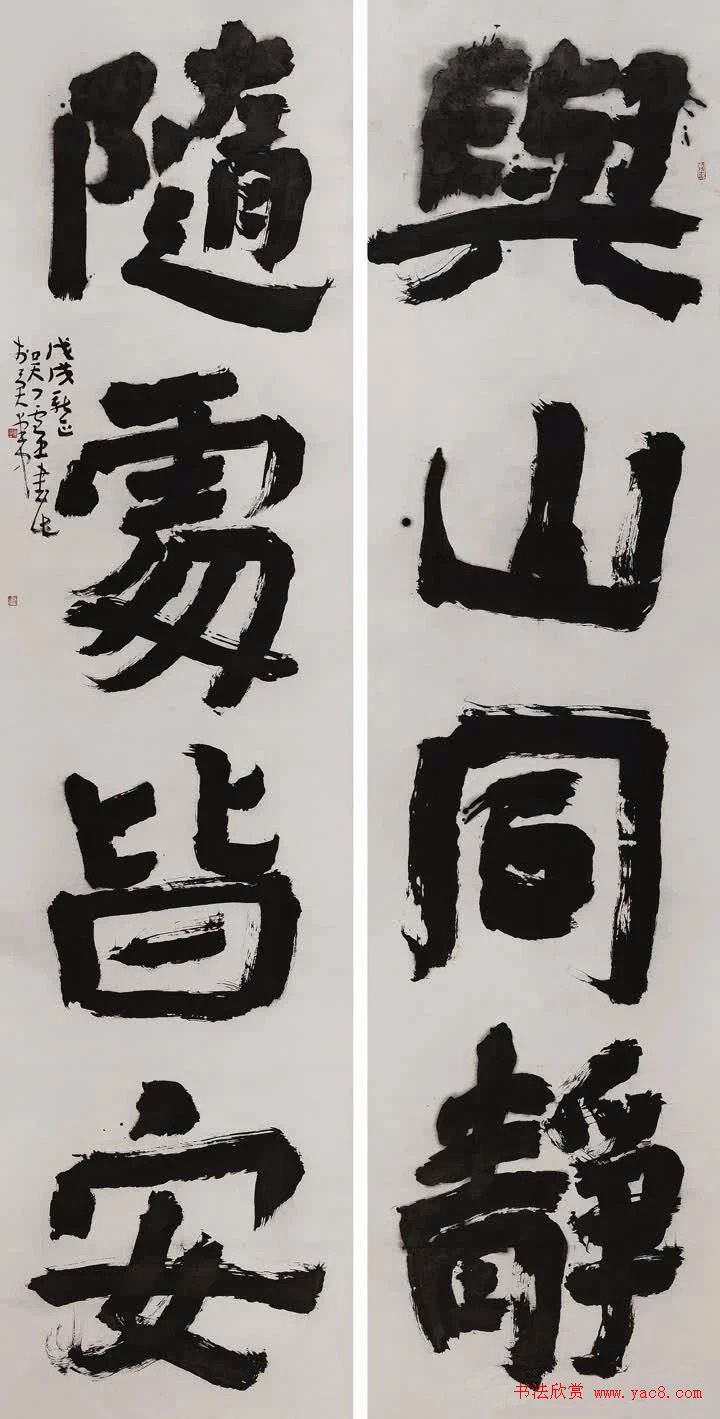 與山同靜
隨處皆安
戊戌新正
書法欣赏 www.yac8.com